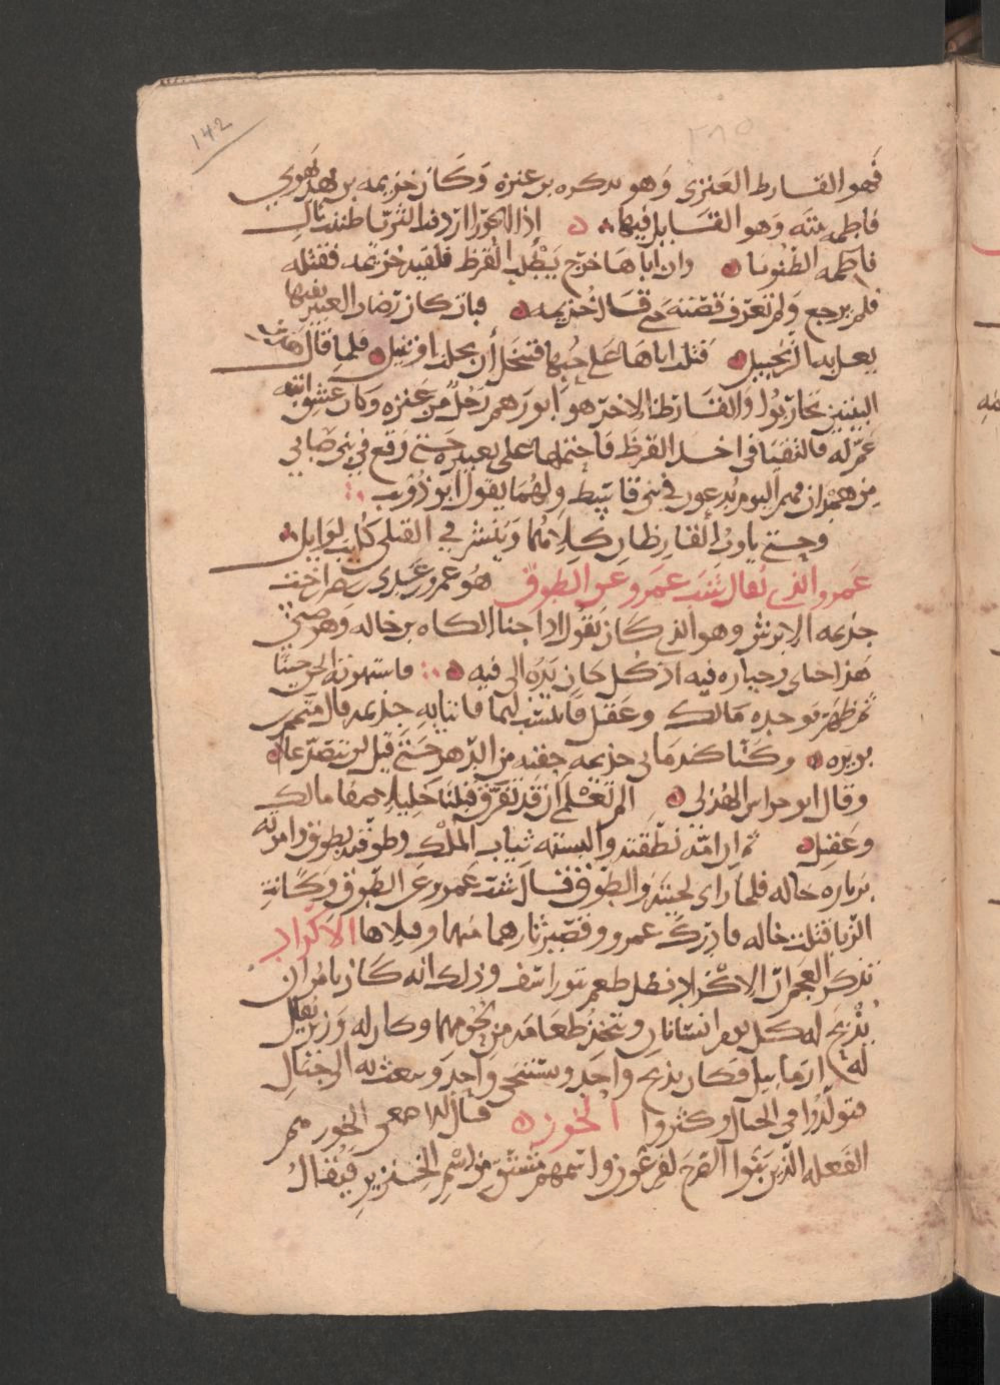 ١٤٢
فهو القارط العنزى وهو يدكره بن عنزه وكان خزيمه بن نهد يهوي
فاطمه بنته وهو القايل فيها اذا الجوزا اردفت الثريا ظننت بال
فاطمه الظنونا وان اباها خرج يطلب القرظ فلقيه خزيمه فقتله
فلم يرجع ولم تعرف قصته حتى قال خزيمه فتاه كان رضاب العبير بفيها
يعل به الزنجبيل قتلت اباها على حبها فتبخل ان بخلت او تنيل فلما قال هذين
البيتين تحاربوا والقارظ الاخر هو ابو رهم رجل من عنزه وكان عشق ابنة
عم له فالتقيا في اخذ القرظ فاحتملها على بعيره حتى وقع في بني
من همدان فهم اليوم يدعون في بني قابيط ولهما يقول ابو ذؤيب
وحتى ياوب القارظان كلاهما وينشر في القتلى كليب لوايل
عمرو الذي يقال شب عمرو عن الطوق هو عمرو بن عدي بن اخت
جذيمه الابرش وهو الذي كان يقول اذا جنا الكماه بن خاله وهو صبي
هذا جناي وخياره فيه اذ كل جان يده الى فيه فاستهوته الجن حينا
ثم ظهر فوجده مالك وعقيل فانتسب لهما فاتيا به جذيمه قال متمم
بن نويره وكنا كندماني جذيمه حقبه من الدهر حتى قيل لن يتصدعا
وقال ابو خراش الهذلي الم تعلمي ان قد تفرق قبلنا خليلا صفا مالك
وعقيل ثم ان امه نطقته والبسته ثياب الملك وطوقته بطوق وامرته
بزياره خاله فلما راى لحيته والطوق قال شب عمرو عن الطوق وكانت
الزبا قتلت خاله فادرك عمرو وقصير ثارهما منها وقتلاها الاكراد
تذكر العجم ان الاكراد فضل طعم بيوراسف وذلك انه كان يامر ان
يذبح له كل يوم انسانان ويتخذ طعامه من لحومهما وكان له وزير يقال
له ارماييل فكان يذبح واحد ويستحيى واحد ويبعث به الى جبال
فتوالدوا في الجبال وكثروا الخوز قال الاصمعي الخوز هم
الفعله الذين بنوا الصرح لفرعون واسمهم مشتق من اسم الخنزير فيقال